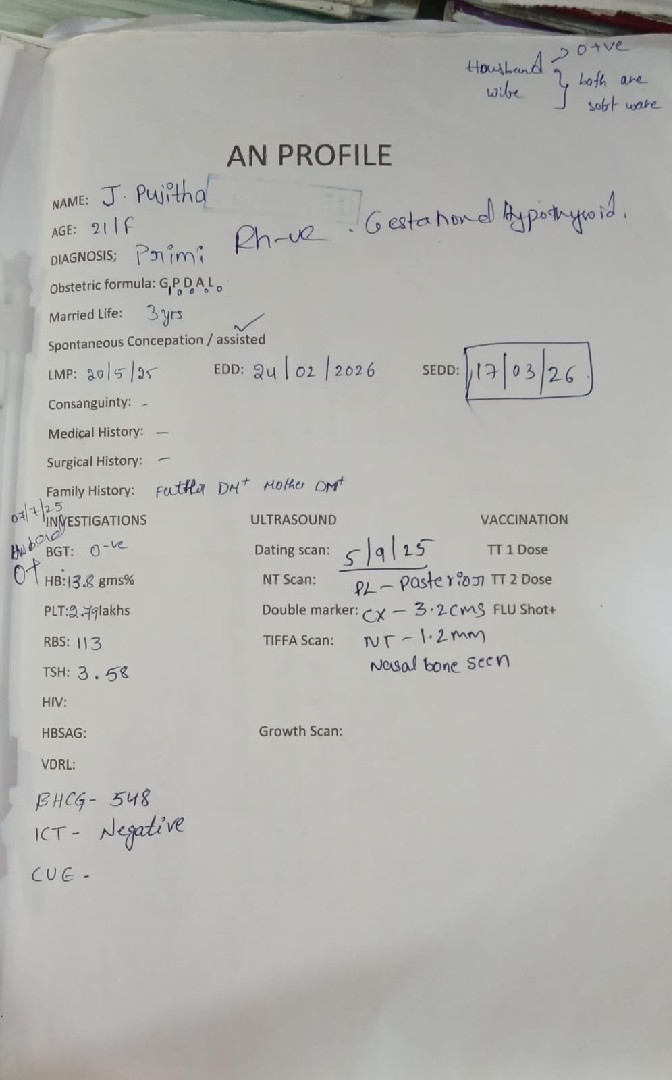 Housband → O+ve
wibe } both are
sobt ware
AN PROFILE
NAME: J. Pujitha
AGE: 21/F
Rh-ve . Gestationd Hypothyroid.
DIAGNOSIS; Primi
Obstetric formula: G1P0D0A0L0
Married Life: 3yrs
Spontaneous Concepation / assisted ✓
LMP: 20/5/25 EDD: 24/02/2026 SEDD: 17/03/26
Consanguinty: -
Medical History: -
Surgical History: -
Family History: Father DM+ Mother DM+
07/7/25
INVESTIGATIONS ULTRASOUND VACCINATION
BGT: O-ve Dating scan: 5/9/25 TT 1 Dose
O+
HB:13.8 gms% NT Scan: PL - Pasterion TT 2 Dose
PLT:2.79lakhs Double marker: CX - 3.2cms FLU Shot+
RBS: 113 TIFFA Scan: NT - 1.2mm
TSH: 3.58 Nasal bone seen
HIV:
HBSAG: Growth Scan:
VDRL:
BHCG- 548
ICT - Negative
CUE -